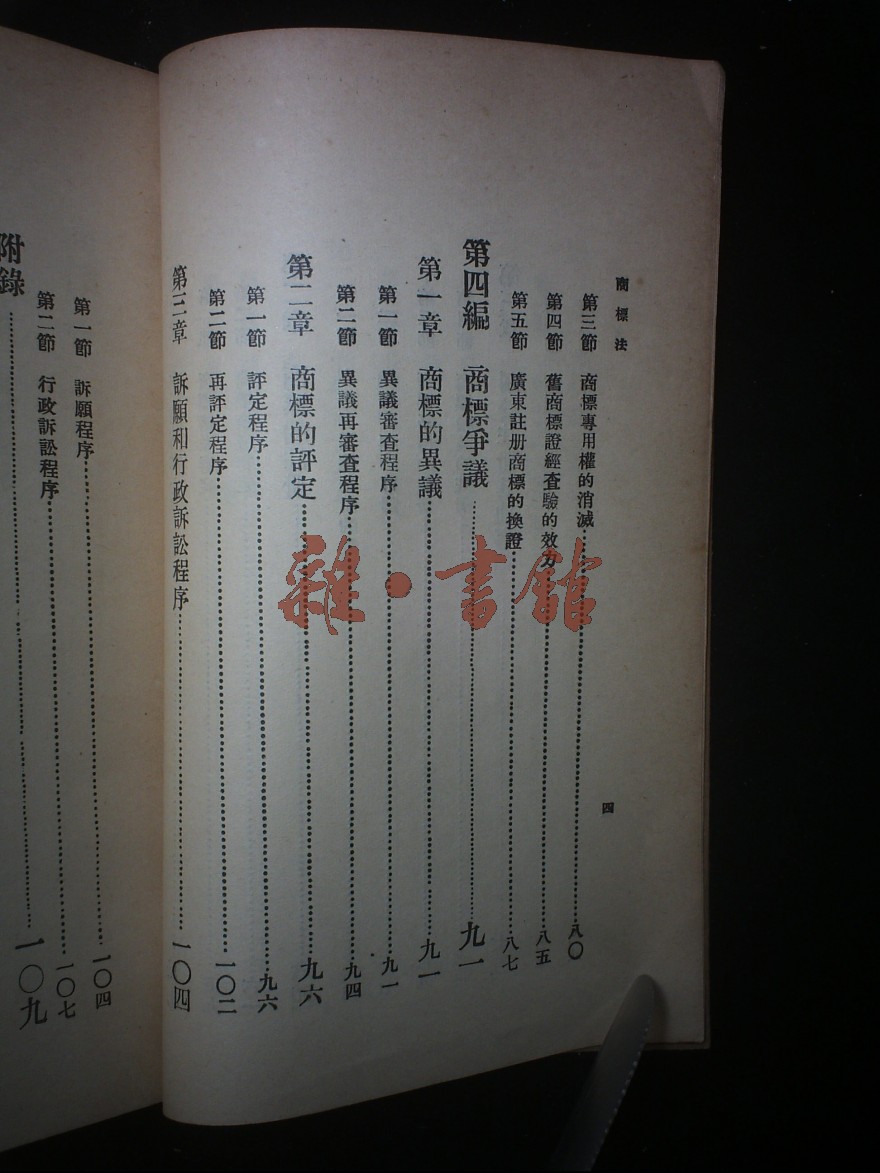 商標法
第三節 商標專用權的消滅……八〇
第四節 舊商標證經查驗的效力……八五
第五節 廣東註册商標的換證……八七
第四編 商標爭議……九一
第一章 商標的異議……九一
第一節 異議審查程序……九一
第二節 異議再審查程序……九四
第二章 商標的評定……九六
第一節 評定程序……九六
第二節 再評定程序……一〇二
第三章 訴願和行政訴訟程序……一〇四
四
第一節 訴願程序……一〇四
第二節 行政訴訟程序……一〇七
附錄……一〇九
雜·書館